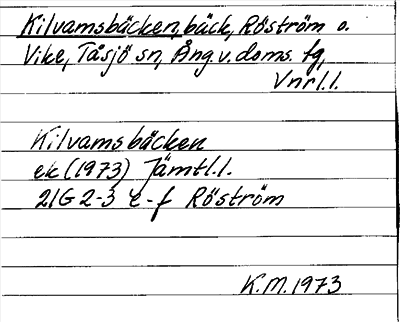 Kilvamsbäcken, bäck, Röström o.
Vike, Tåsjö sn, Ång.v.doms. fg,
Vnrl.l.
Kilvamsbäcken
ek (1973) Jämtl.l.
21G 2-3 e-f Röström
K.M. 1973